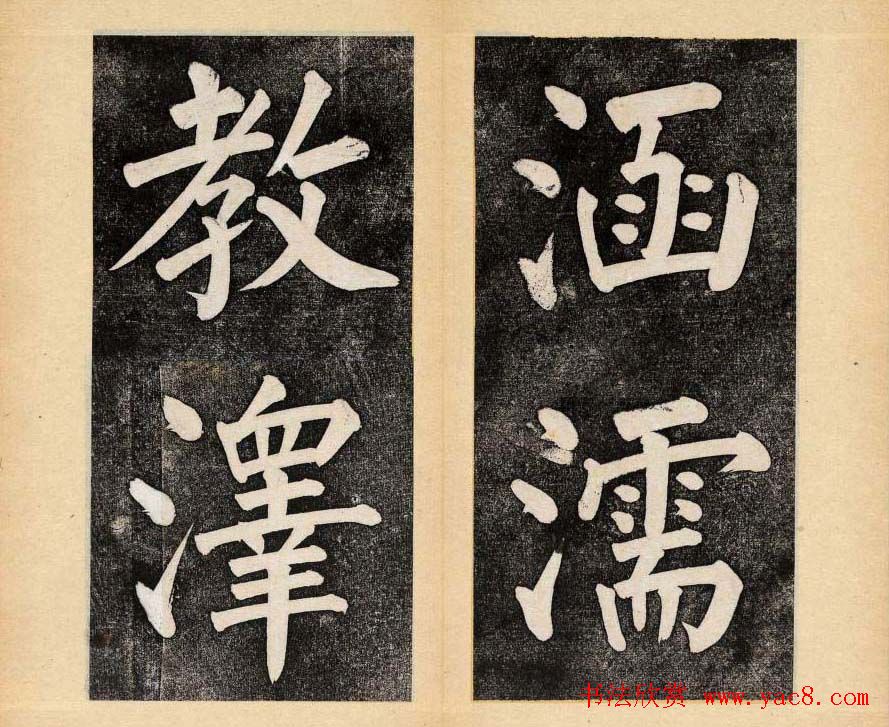 涵濡
教澤
书法欣赏 www.yac8.com